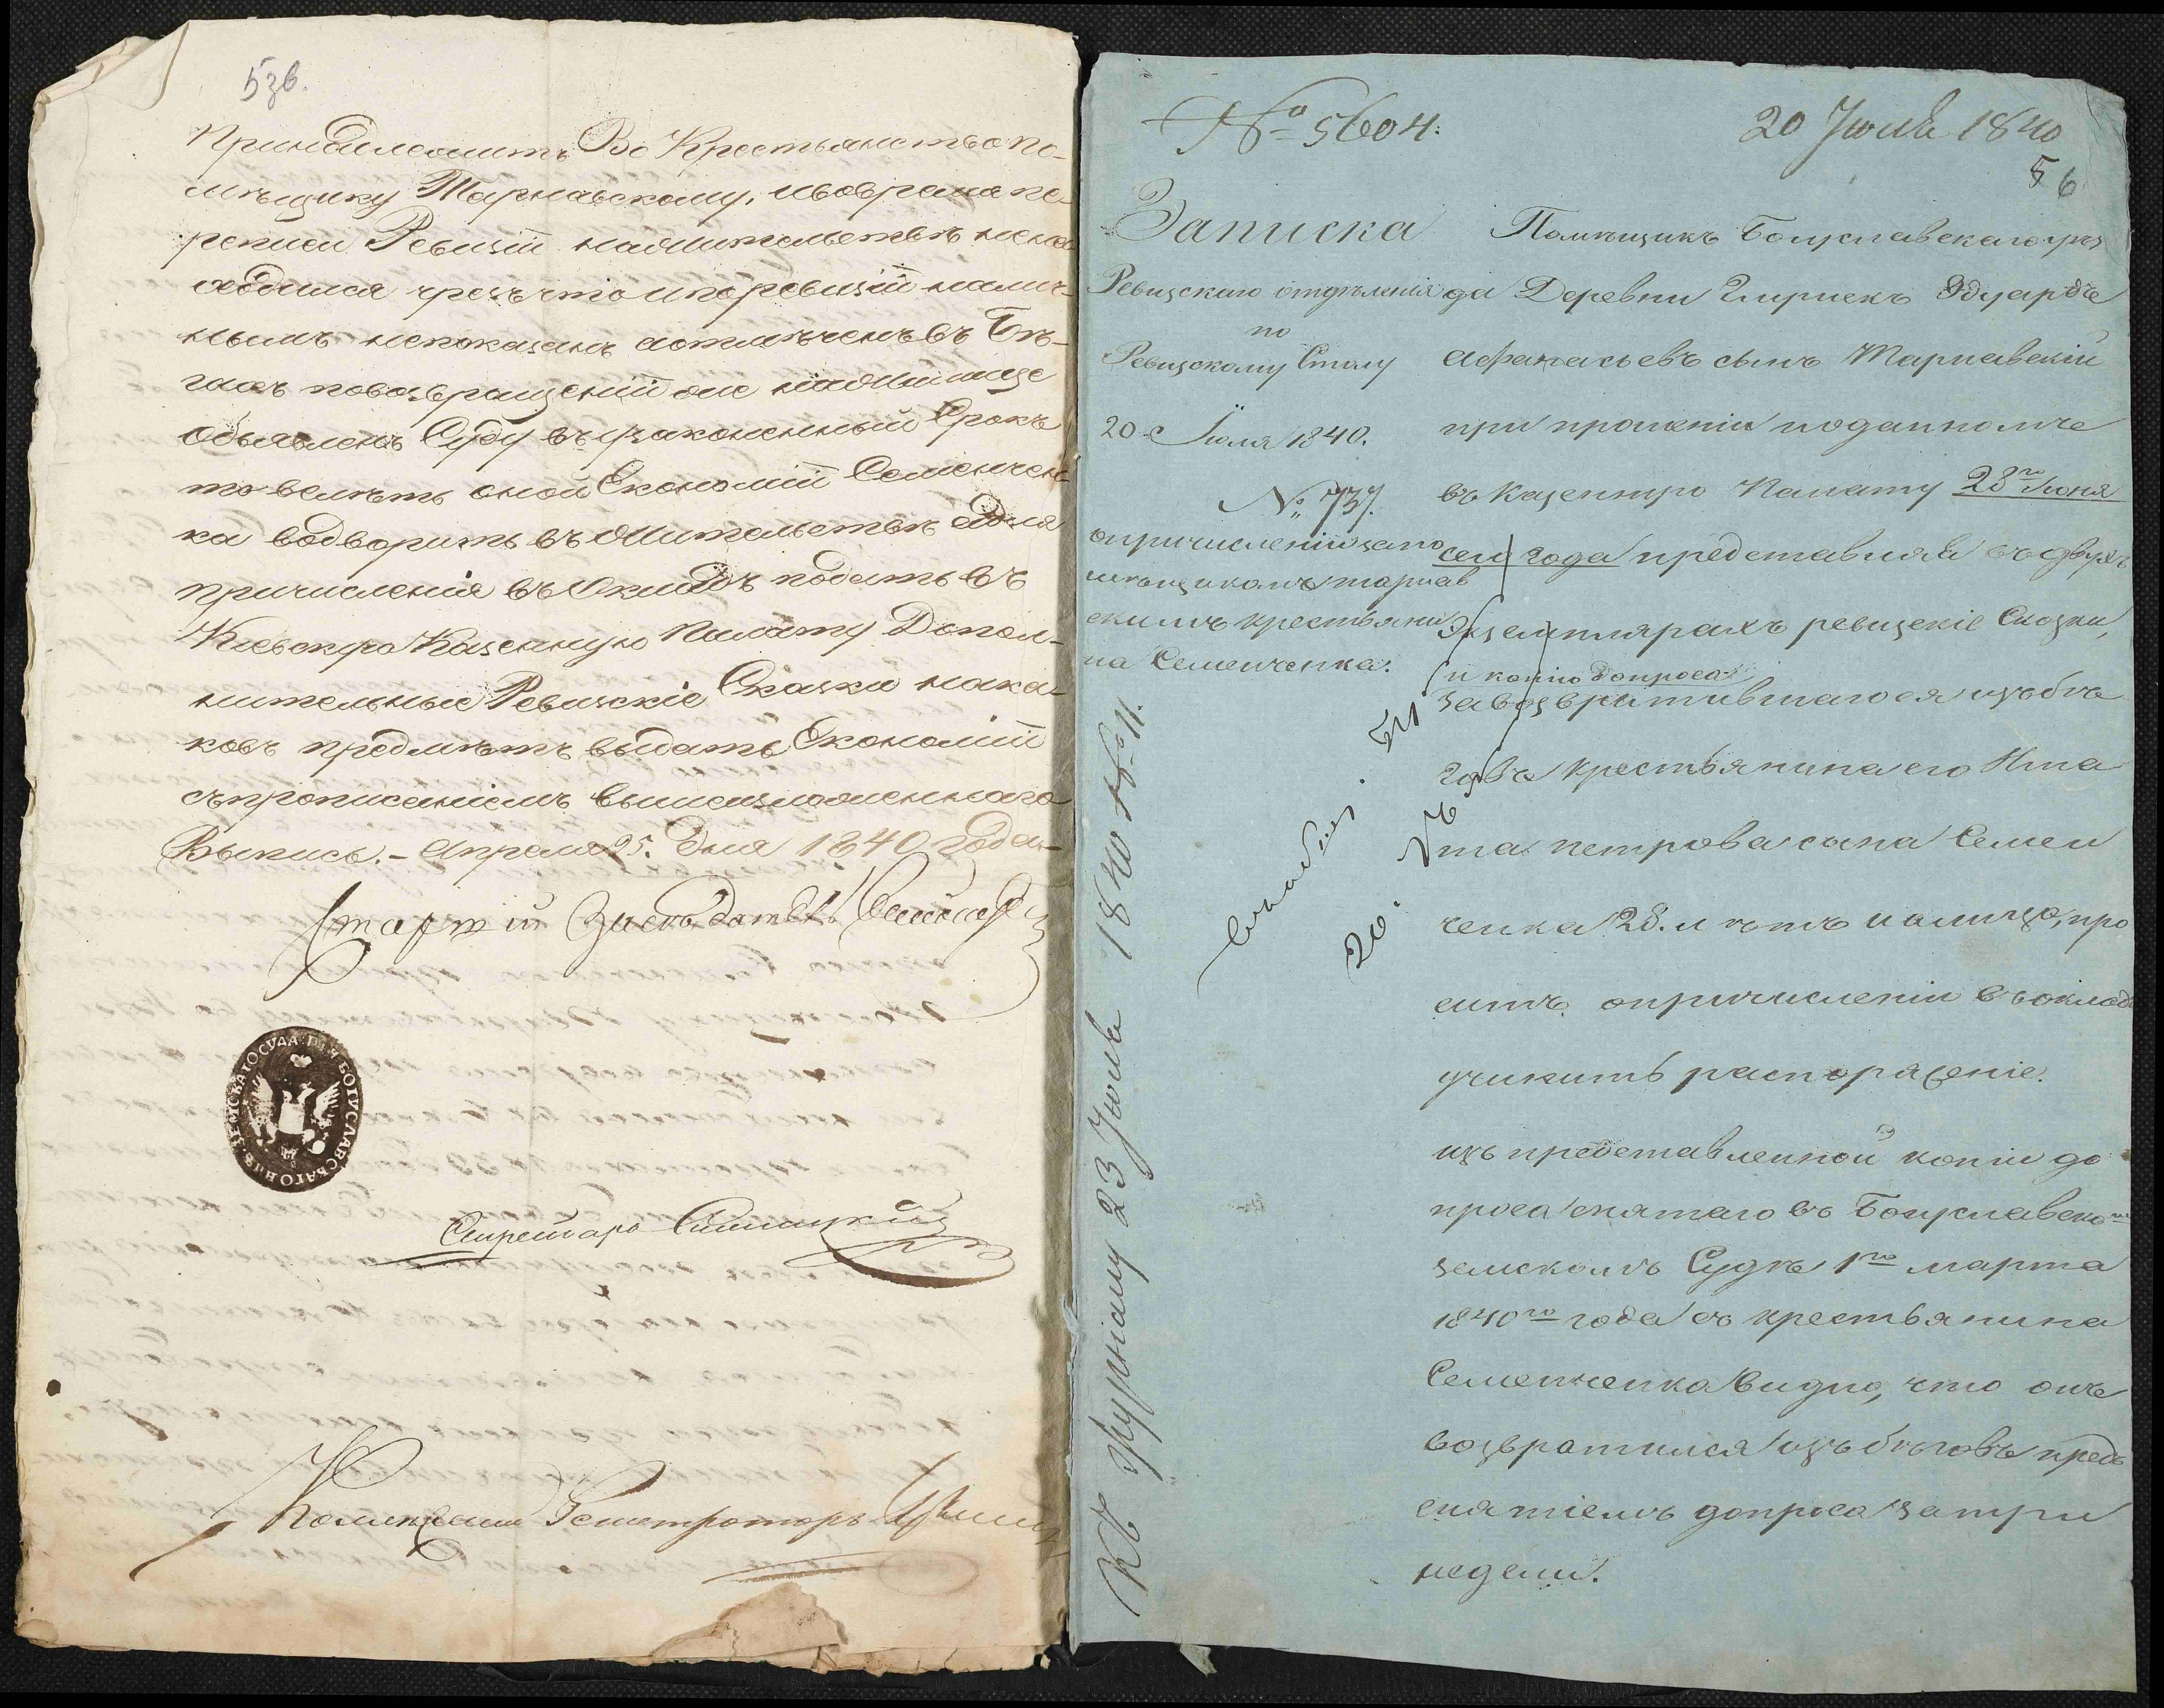 53б.
Принадлежитъ Во Крестьянство по-
мѣщику Тарнавскому, ивовремя пе-
реписи Ревизіи нажительствѣ нена
ходился чрезъ что и поревизіи налич-
нымъ непоказанъ аотмѣченъ въ Бѣ-
гахъ повозвращеніи же налице
объявленъ Суду въ узаконенный Срокъ
то велѣть оной Економіи Семенчен
ка водворить въ Жительствѣ адля
причисленія въ Окладъ подать въ
Кіевскую Казенную Палату Допол-
нительные Ревизскіе Сказки нака-
ковъ предмѣтъ выдать Економіи
съпрописаніемъ вышеизложеннаго
Выпись. - Апреля 25. Дня 1840 Года -
Старшій Засѣдатель
ПЕЧ. БОГУСЛАВСКАГО НИЖ. ЗЕМСКАГО СУДА
Секретарь
Коллежскій Регистраторъ
№ 5604.
20 Іюля 1840
56
Записка
Ревизскаго отдѣленія
по
Ревизскому Столу
20-е Іюля 1840.
№ 737.
опричисленіи запо
мѣщикомъ тарнав
скимъ крестьяни
на Семенченка.
Къ Журналу 23 Іюля 1840 № 11.
Помѣщикъ Богуславскаго уѣз
да Деревни Эдуардъ
Афанасьевъ сынъ Тарнавскій
при прошеніи поданномъ
въ Казенную Палату 28го Іюня
сего года представляя въ двухъ
Экземплярахъ ревизскіе Сказки,
и копію допроса
завозвратившагося изъ бѣ
говъ крестьянина его Игна
та петрова сына Семен
ченка 28. лѣтъ налицо, про
ситъ опричисленіи въ окладъ
учинить распоряженіе.
изъ представленной копіи до
проса снятаго въ Богуславско
земскомъ Судѣ 1го марта
1840го года съ крестьянина
Семенченка видно, что онъ
возвратился изъ бѣговъ предъ
снятіемъ допроса за три
недели.